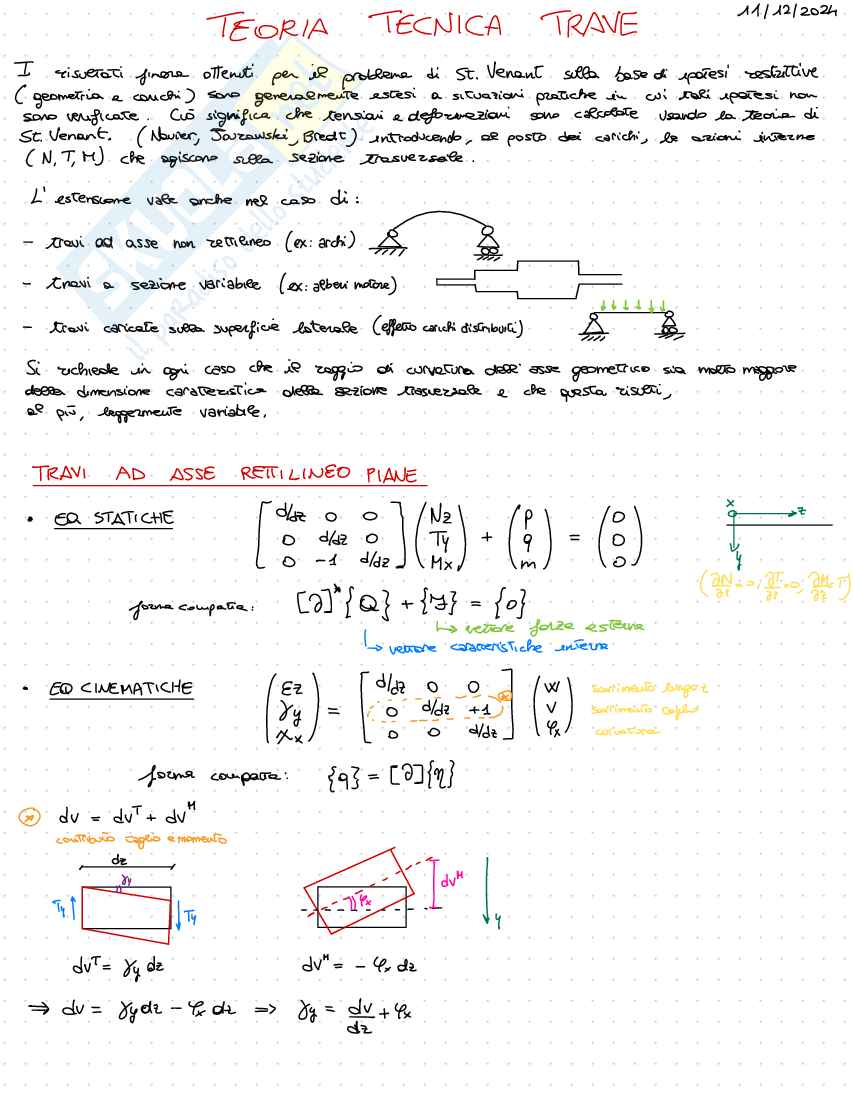 TEORIA TECNICA TRAVE
11/12/2024
I risultati finora ottenuti per il problema di St. Venant sulla base di ipotesi restrittive
(geometria e carichi) sono generalmente estesi a situazioni pratiche in cui tali ipotesi non
sono verificate. Ciò significa che tensioni e deformazioni sono calcolate usando la teoria di
St. Venant. (Navier, Jourawski, Bredt) introducendo, al posto dei carichi, le azioni interne
(N, T, M) che agiscono sulla sezione trasversale.
L' estensione vale anche nel caso di:
- travi ad asse non rettilineo (ex: archi)
- travi a sezione variabile (ex: alberi motore)
- travi caricate sulla superficie laterale (effetto carichi distribuiti)
Si richiede in ogni caso che il raggio di curvatura dell' asse geometrico sia molto maggiore
della dimensione caratteristica della sezione trasversale e che questa risulti,
al più, leggermente variabile.
TRAVI AD ASSE RETTILINEO PIANE
• EQ STATICHE
[d/dz 0 0] (Nz) (p) (0)
[0 d/dz 0] (Ty) + (q) = (0)
[0 -1 d/dz] (Mx) (m) (0)
x z y
(∂N/∂z=0; ∂T/∂z=0; ∂M/∂z=T)
forma compatta: [∂]*{Q} + {F} = {0}
↳ vettore forze esterne
↳ vettore caratteristiche interne
• EQ CINEMATICHE
(εz) [d/dz 0 0] (w) scorrimento lungo z
(γy) = [0 d/dz +1] (v) scorrimento taglio
(χx) [0 0 d/dz] (φx) curvatura
forma compatta: {q} = [∂]{η}
* dv = dv^T + dv^M
contributo taglio e momento
dz
γy
Ty Ty
φx dv^M y
dv^T = γy dz
dv^M = - φx dz
⇒ dv = γy dz - φx dz ⇒ γy = dv/dz + φx
SKUOLA.NET
il paradiso dello studente